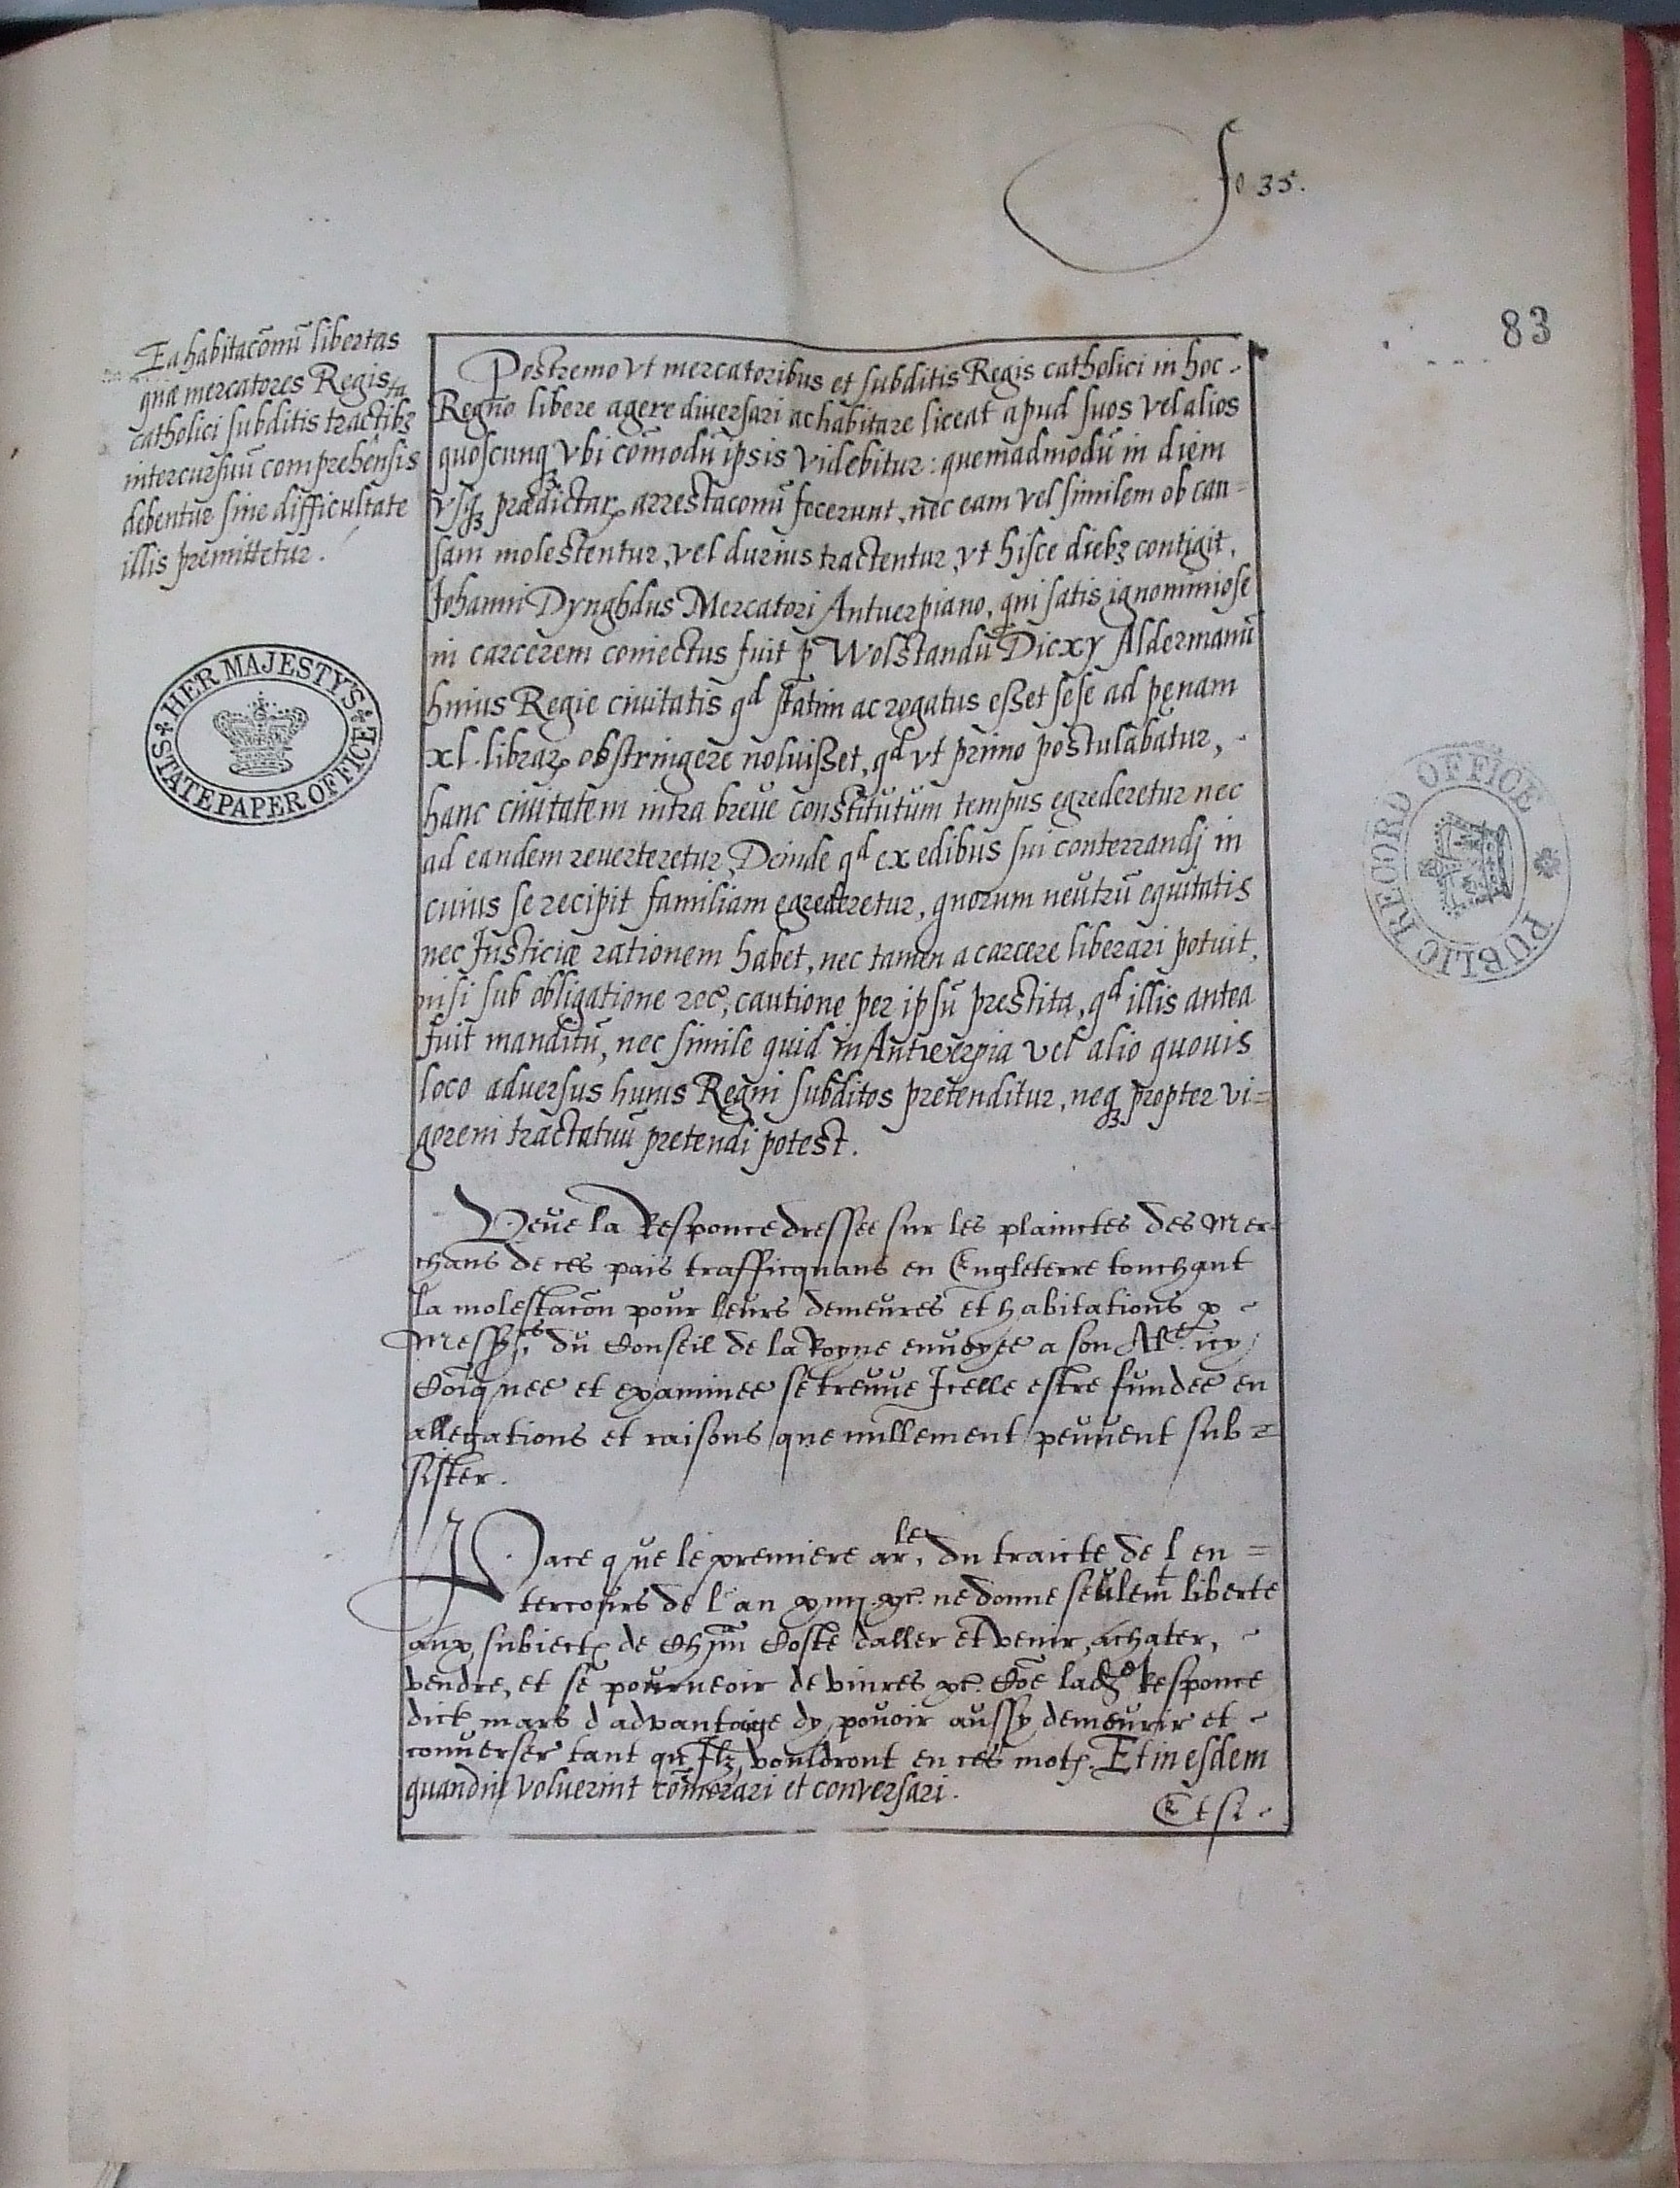 fo 35.
83
Ea habitacōnū libertas
quæ mercatores Regis
catholici subditis tractibȝ ta
intercursuū comprehensis
debentur sine difficultate
illis premittetur.
Postremo vt mercatoribus et subditis Regis catholici in hoc
Regno libere agere diuersari ac habitare liceat apud suos vel alios
quoscunqȝ vbi cōmodū ipsis videbitur: quemadmodū in diem
vsqȝ prædictarꝝ arrestaconū fecerunt, nec eam vel similem ob cau=
sam molestentur, vel durius tractentur, vt hisce diebȝ contigit,
Johanni Dynghdus Mercatori Antuerpiano, qui satis ignominiose
in carcerem coniectus fuit ꝑ Wolstandū Dicxy Aldermanū
huius Regie ciuitatis qd statim ac rogatus esset sese ad pęnam
xl. librarꝝ obstringere noluisset, qd vt primo postulabatur,
hanc ciuitatem intra breue constitutum tempus egrederetur nec
ad eandem reuerteretur, Deinde qd ex edibus sui conterrandj in
cuius se recipit familiam egrederetur, quorum neutrū equitatis
nec Justiciæ rationem habet, nec tamen a carcere liberari potuit,
nisi sub obligatione rec, cautione per ipsū prestita, qd illis antea
fuit manditū, nec simile quid in Antwerpia vel alio quouis
loco aduersus huius Regni subditos pretenditur, neqȝ propter vi=
gorem tractatuū pretendi potest.
Veue la Responce dressee sur les plainctes des Mer=
chans de ces pais trafficquans en Engleterre touchant
la molestacōn pour leurs demeures et habitations ꝑ
Messrs. du Conseil de la Royne enuoyee a son Alce. icy
Coīquee et examinee se treuue Icelle estre fundee en
allegations et raisons que nullement peuuent sub=
sister.
Pace que le premiere arle. du traicte de l en=
tercours de l'an xiiij. xc. ne donne seulemt liberte
aux subiectz de Chūn Coste daller et venir, achater,
vendre, et se pourueoir de viures xc. Cōe lade Responce
dict mars d advantaige dy pouoir aussy demeurir et
conuerser tant qu Ilz vouldront en ces motz. Et in esdem
quandiu voluerint cōmorari et conversari.
Et si
HER MAJESTY'S STATE PAPER OFFICE
PUBLIC RECORD OFFICE